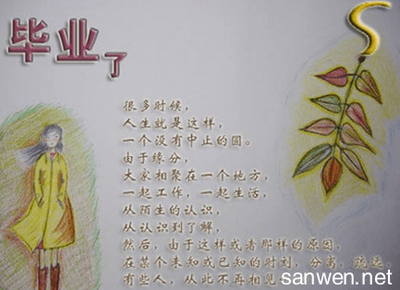 毕业了
很多时候，
人生就是这样，
一个没有中止的圆。
由于缘分，
大家相聚在一个地方，
一起工作，一起生活，
从陌生的认识，
从认识到了解，
然后，由于这样或者那样的原因，
在某个未知或已知的时刻，分离，
有些人，从此不再相见
sanwen.net